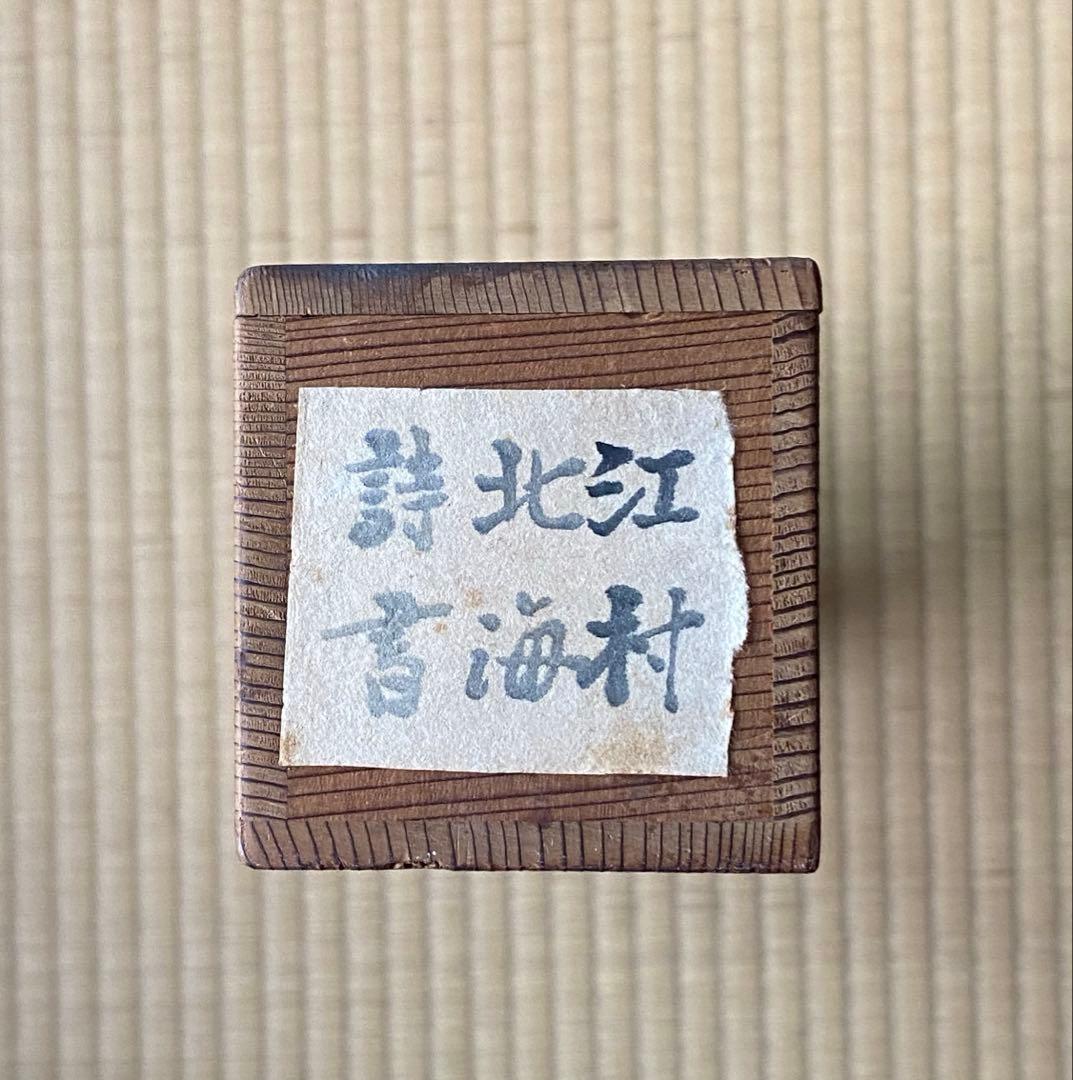 江村
北海
詩書